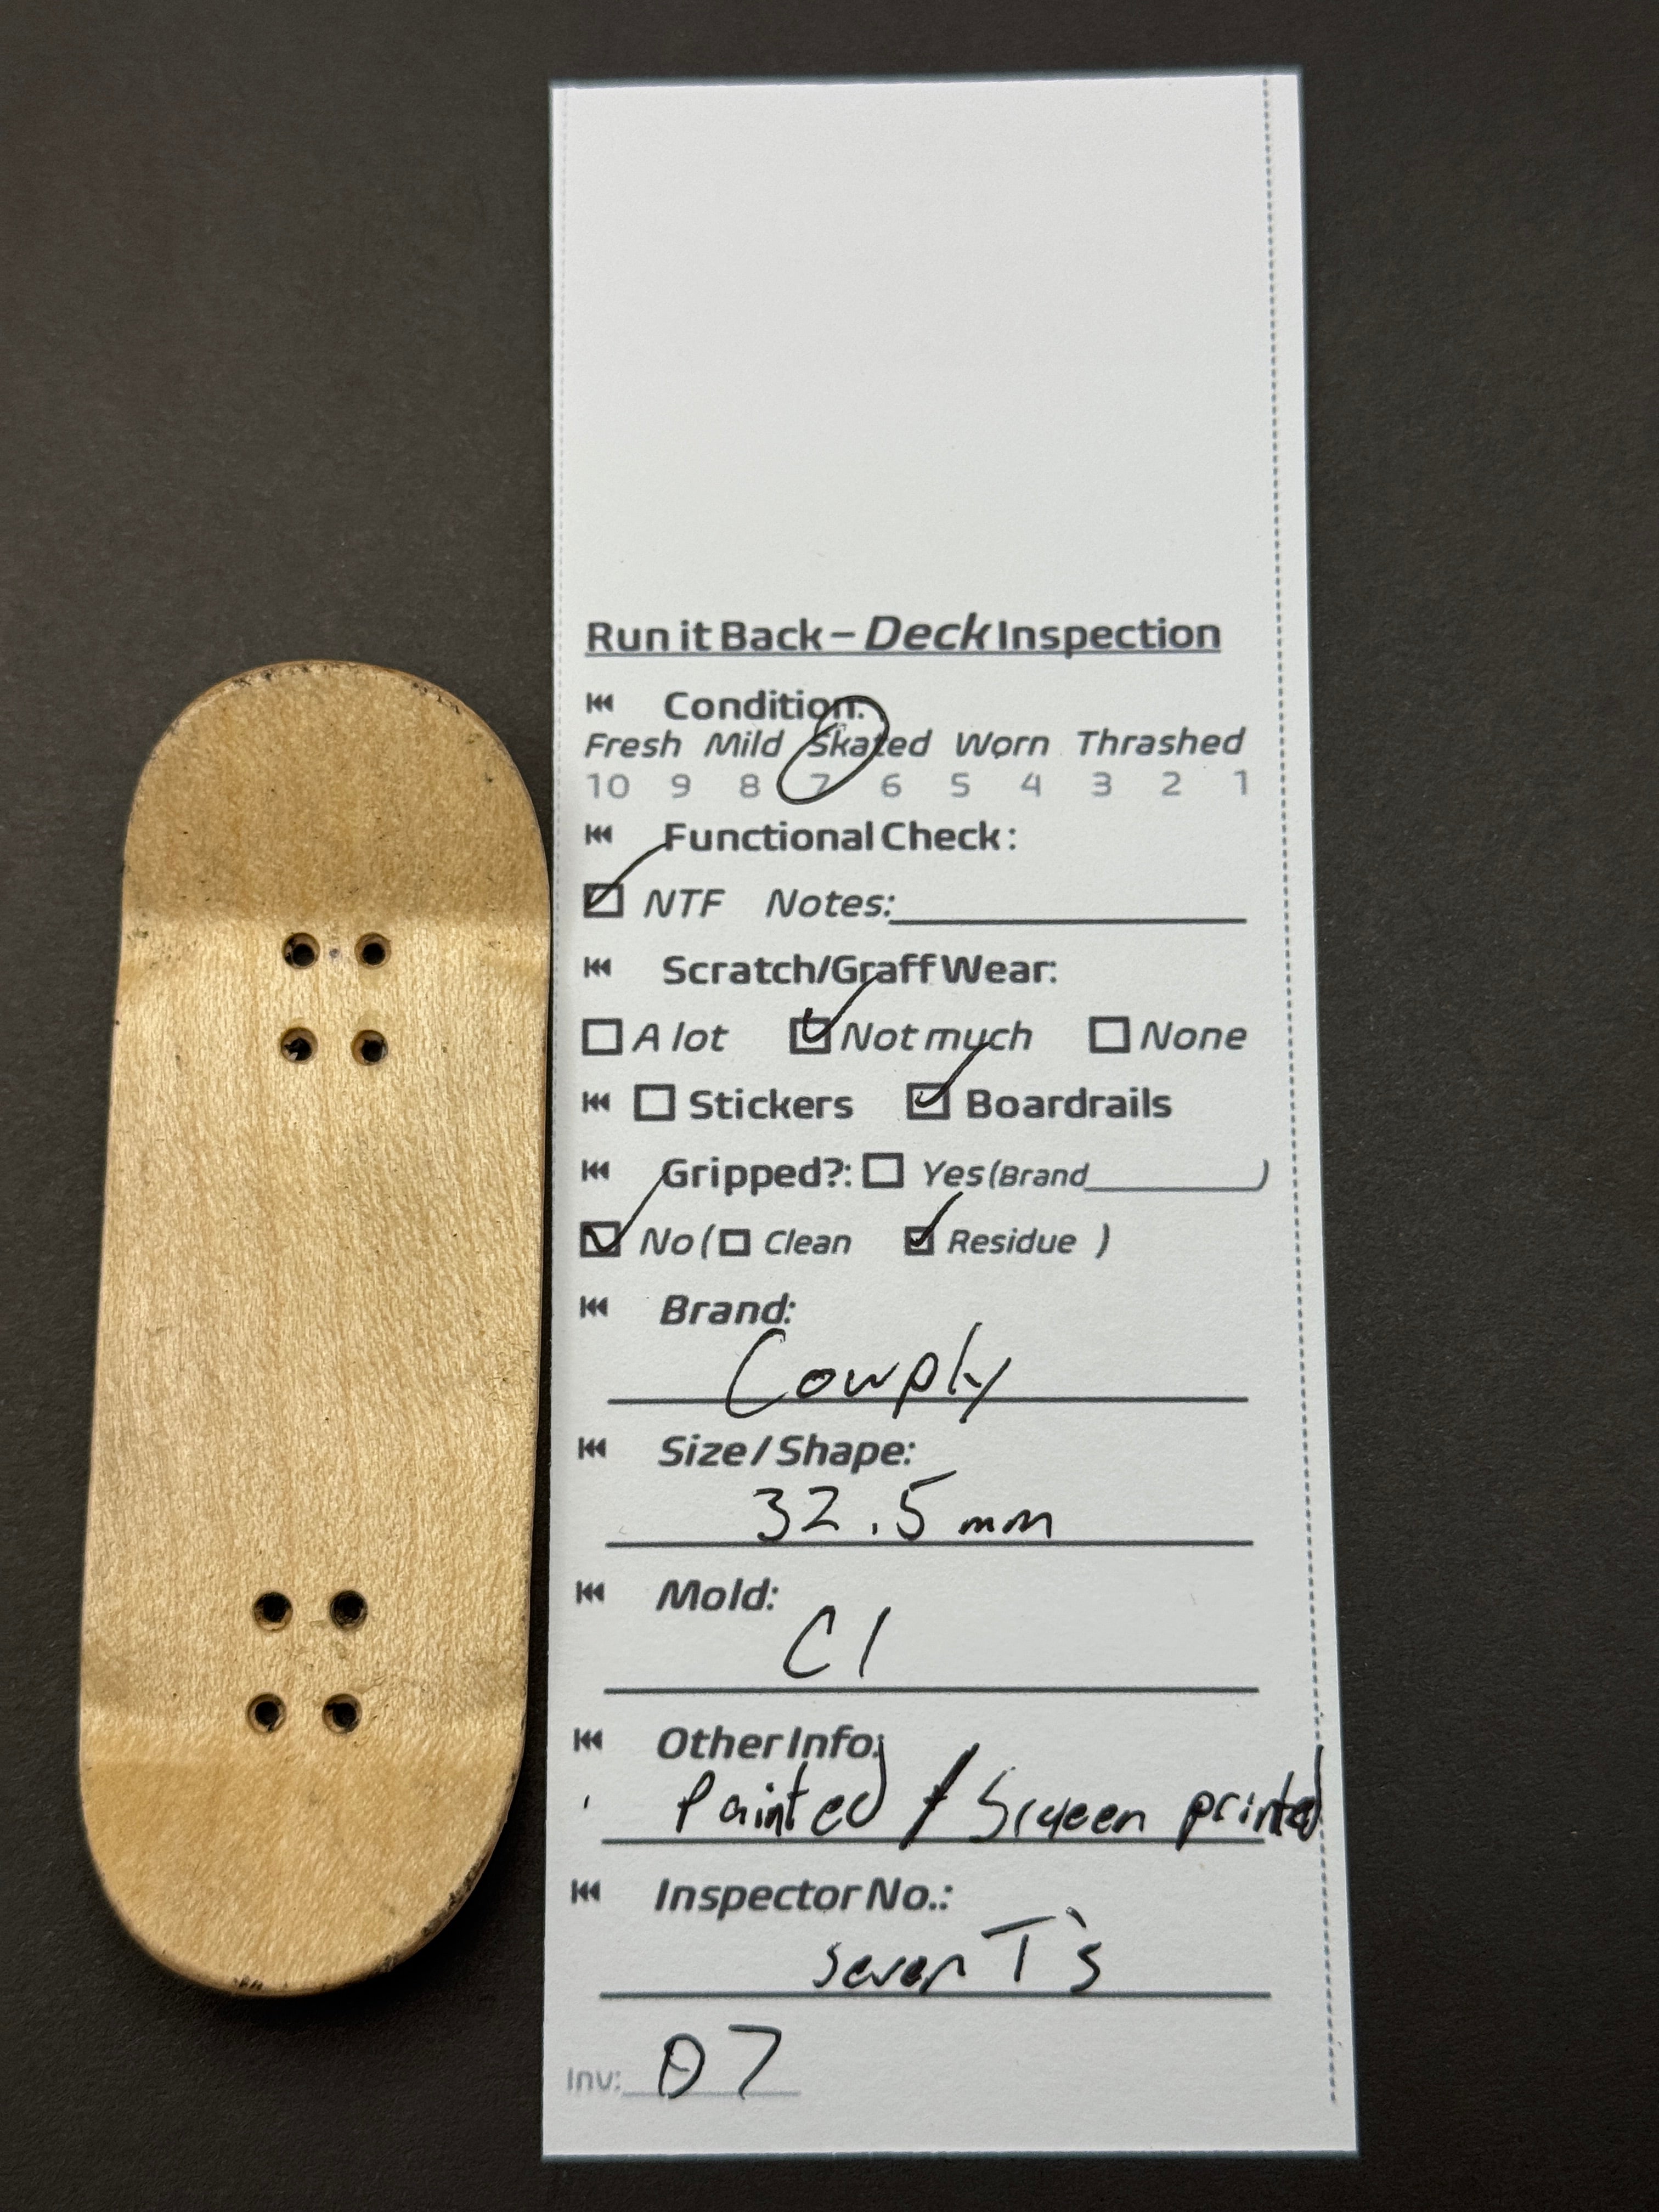 Run it Back – Deck Inspection
Condition:
Fresh Mild Skated Worn Thrashed
10 9 8 7 6 5 4 3 2 1
Functional Check:
NTF Notes:
Scratch/Graff Wear:
A lot Not much None
Stickers Boardrails
Gripped?: Yes (Brand )
No ( Clean Residue )
Brand:
Cowply
Size / Shape:
32.5mm
Mold:
C1
Other Info:
Painted / Screen printed
Inspector No.:
seven T's
Inv: 07